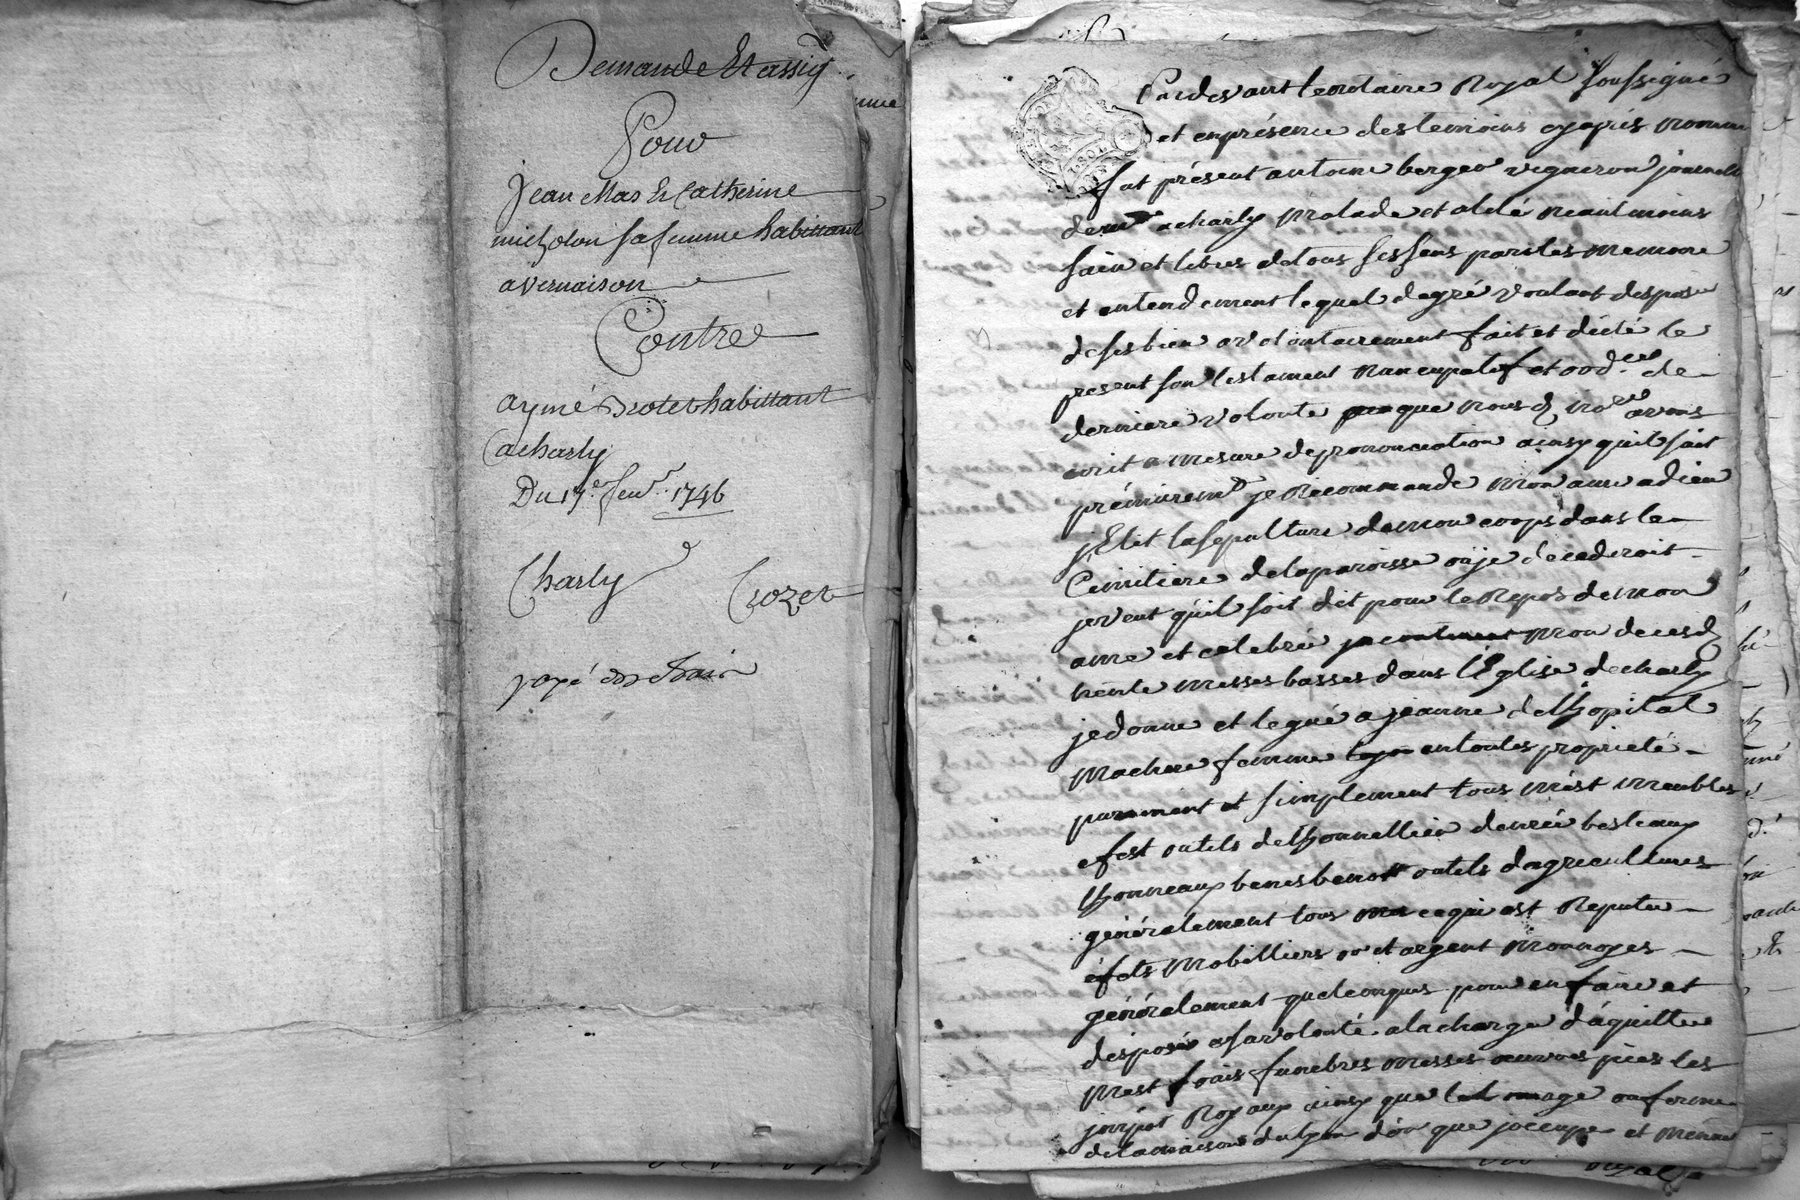 Demande Et assig
Pour
Jean Mas Et Catherine
micholon sa femme habittant
a vernaison
Contre
aymé habittant
a charly
Du 17e. feur. 1746
Charly Crozet
payé
Pardevant le notaire Royal soussigné
et en présence des temoins cy apres nomm
fut présent antoine berger vigneron journali
demt a charly malade et alité neantmoins
sain et libres de tous ses sens paroles memoire
et entendement lequel de gré voulant disposer
de ses bien a volontairement fait et dicté le
present son testament nuncupatif et ord.ce de
derniere volonte que nous d no.re avons
ecrit a mesure de prononciation ainsy quil suit
prémierem.t je Recommande mon ame a dieu
j'Elit la sepulture de mon corps dans le
Cimitiere de la paroisse ou je decederoit
je veut quil soit dit pour le Repos de mon
ame et celebrée mon deces
trente messes basses dans l'Eglise de charly
je donne et legué a jeanne de lhopital
ma chere femme en toutes proprieté
purement et simplement tous mest meubles
efest outils de thonnellier denrée besteaux
thonneaux benes benott outils d'agreculture
généralement tous ce qui est Reputer
éfets mobilliers or et argent monnoyes
généralement quelconques pour en faire et
disposer a sa volonté a la charge d'aquitter
mest frais funebres messes oeuvres pies les
impot Royaux ainsy que le ou ferme
de la maison d'ou que j'occupe et